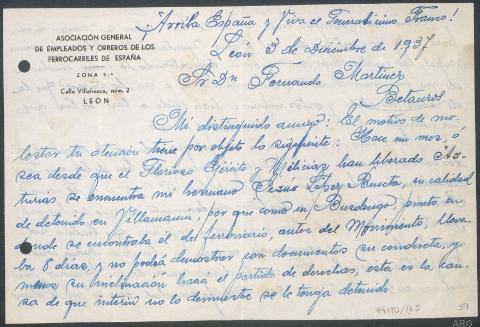 ¡Arriba España y Viva el Generalísimo Franco!
ASOCIACIÓN GENERAL
DE EMPLEADOS Y OBREROS DE LOS
FERROCARRILES DE ESPAÑA
ZONA 9.ª
Calle Villafranca, núm. 2
LEÓN
León 3 de Diciembre de 1937
Sr Dn Fernando Martinez
Betanzos
Mi distinguido amigo: El motivo de mo-
lestar tu atención tiene por objeto lo siguiente: Hace un mes, ó
sea desde que el Glorioso Ejército y Milicias han liberado As-
turias se encuentra mi hermano López Buneta, en calidad
de detenido en Villamanin, por que como en Busdongo, punto en
donde se encontraba el del ferroviario, antes del Movimiento, lleva-
ba 8 dias, y no podrá demostrar con documentos su conducta, y
menos su inclinación hacia el partido de derechas, esta es la cau-
sa de que interin no lo demuestre se le tenga detenido.
59
ARG